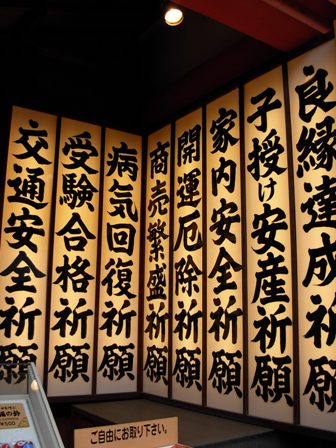 良縁達成祈願
子授け安産祈願
家内安全祈願
開運厄除祈願
商売繁盛祈願
病気回復祈願
受験合格祈願
交通安全祈願
ご自由にお取り下さい。
¥500